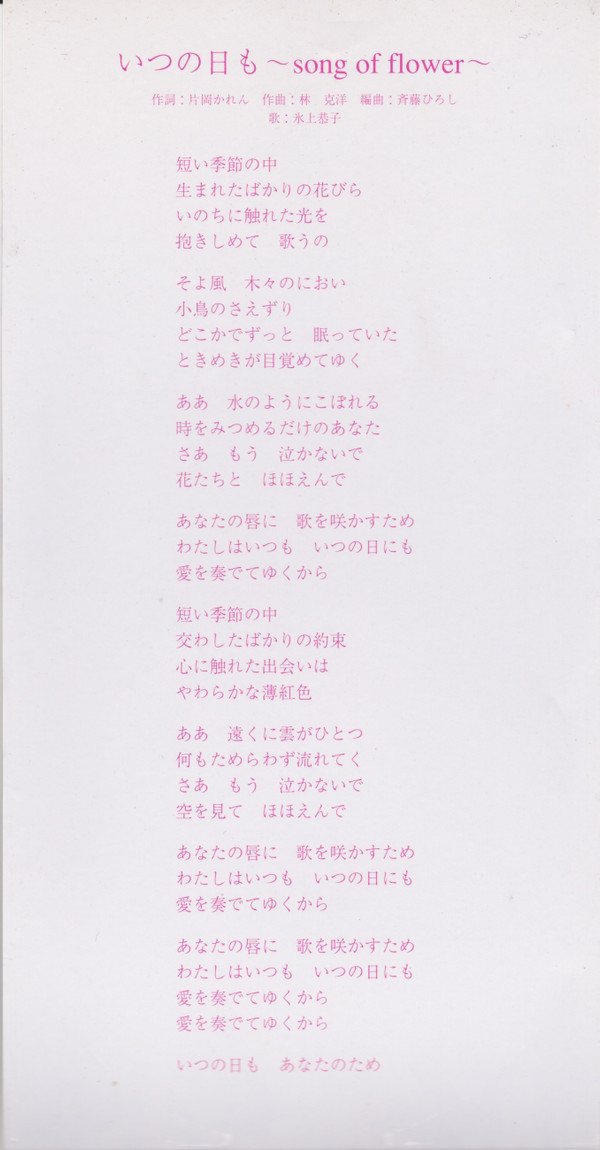 いつの日も～song of flower～
作詞：片岡かれん　作曲：林　克洋　編曲：斉藤ひろし
歌：氷上恭子
短い季節の中
生まれたばかりの花びら
いのちに触れた光を
抱きしめて　歌うの
そよ風　木々のにおい
小鳥のさえずり
どこかでずっと　眠っていた
ときめきが目覚めてゆく
ああ　水のようにこぼれる
時をみつめるだけのあなた
さあ　もう　泣かないで
花たちと　ほほえんで
あなたの唇に　歌を咲かすため
わたしはいつも　いつの日にも
愛を奏でてゆくから
短い季節の中
交わしたばかりの約束
心に触れた出会いは
やわらかな薄紅色
ああ　遠くに雲がひとつ
何もためらわず流れてく
さあ　もう　泣かないで
空を見て　ほほえんで
あなたの唇に　歌を咲かすため
わたしはいつも　いつの日にも
愛を奏でてゆくから
あなたの唇に　歌を咲かすため
わたしはいつも　いつの日にも
愛を奏でてゆくから
愛を奏でてゆくから
いつの日も　あなたのため